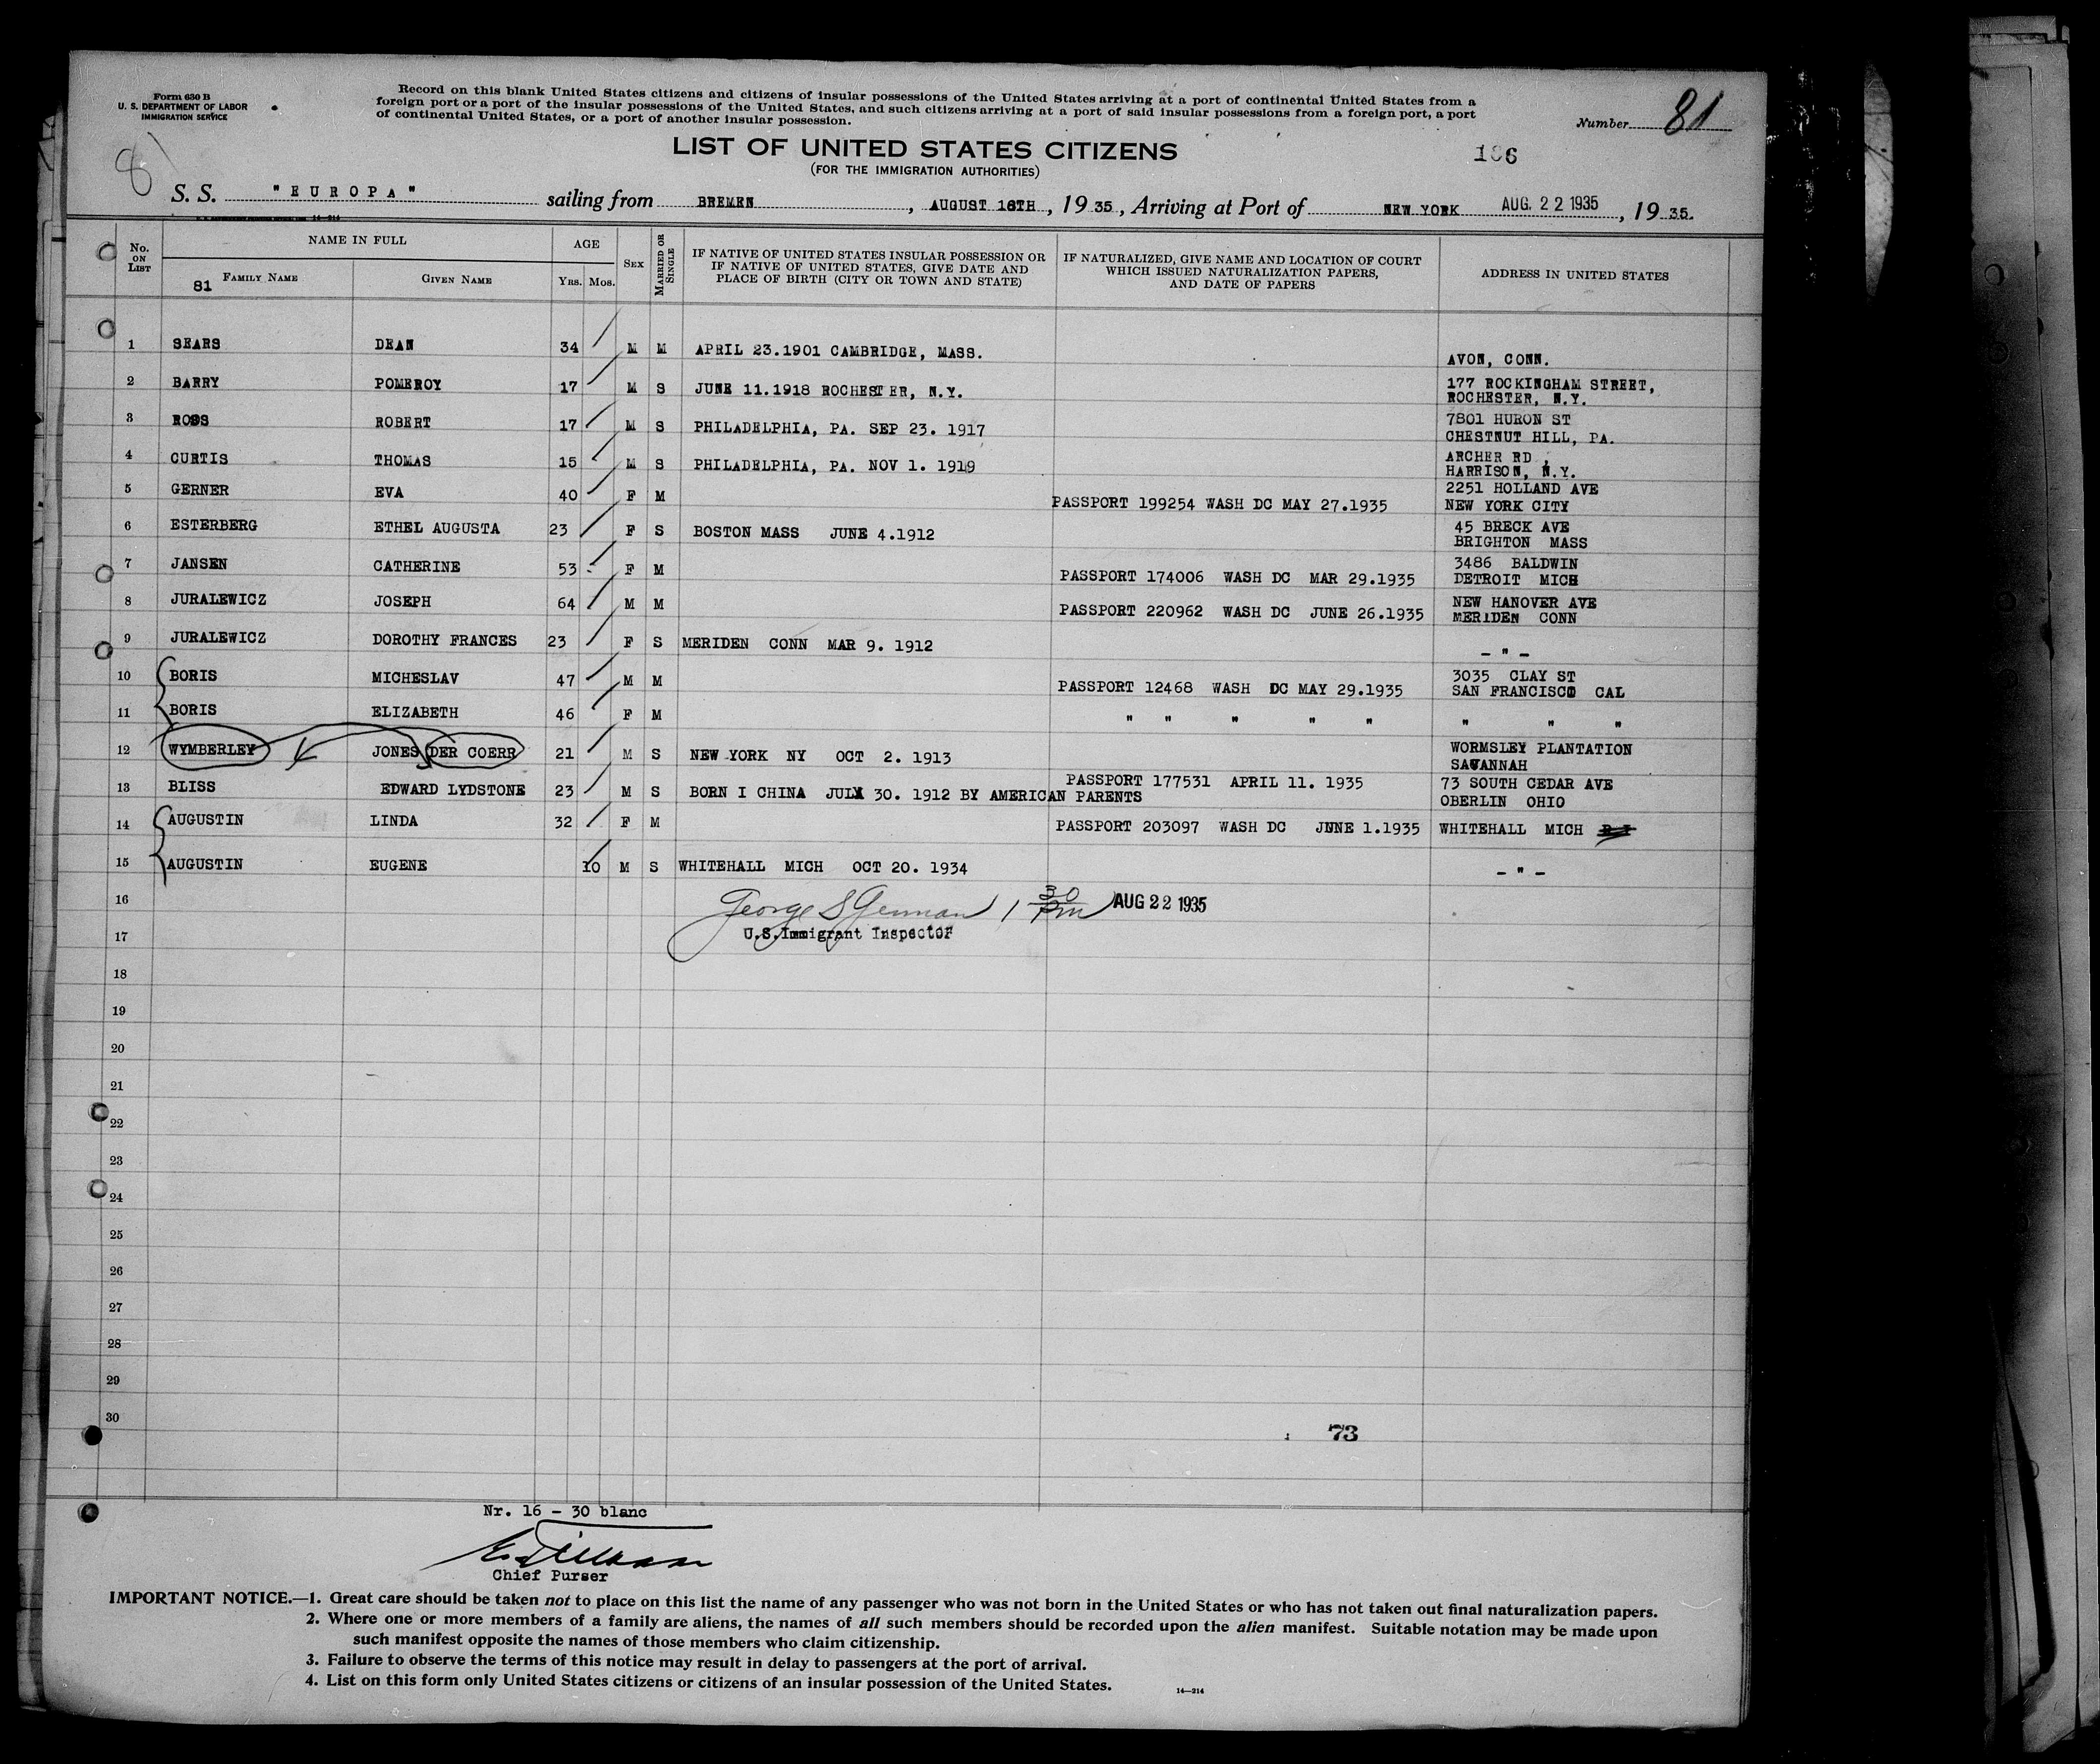 Form 630 B
U. S. DEPARTMENT OF LABOR
IMMIGRATION SERVICE
Record on this blank United States citizens and citizens of insular possessions of the United States arriving at a port of continental United States from a
foreign port or a port of the insular possessions of the United States, and such citizens arriving at a port of said insular possessions from a foreign port, a port
of continental United States, or a port of another insular possession.
Number 81
LIST OF UNITED STATES CITIZENS
(FOR THE IMMIGRATION AUTHORITIES)
186
8
S. S. "EUROPA" sailing from BREMEN, AUGUST 16TH, 1935, Arriving at Port of NEW YORK AUG. 22 1935, 1935.
No. ON LIST
NAME IN FULL
81 FAMILY NAME
GIVEN NAME
AGE
YRS. MOS.
SEX
MARRIED OR SINGLE
IF NATIVE OF UNITED STATES INSULAR POSSESSION OR
IF NATIVE OF UNITED STATES, GIVE DATE AND
PLACE OF BIRTH (CITY OR TOWN AND STATE)
IF NATURALIZED, GIVE NAME AND LOCATION OF COURT
WHICH ISSUED NATURALIZATION PAPERS,
AND DATE OF PAPERS
ADDRESS IN UNITED STATES
1 SEARS DEAN 34 M M APRIL 23.1901 CAMBRIDGE, MASS. AVON, CONN.
2 BARRY POMEROY 17 M S JUNE 11.1918 ROCHESTER, N.Y. 177 ROCKINGHAM STREET,
ROCHESTER, N.Y.
3 ROSS ROBERT 17 M S PHILADELPHIA, PA. SEP 23. 1917 7801 HURON ST
CHESTNUT HILL, PA.
4 CURTIS THOMAS 15 M S PHILADELPHIA, PA. NOV 1. 1919 ARCHER RD ,
HARRISON, N.Y.
5 GERNER EVA 40 F M PASSPORT 199254 WASH DC MAY 27.1935 2251 HOLLAND AVE
NEW YORK CITY
6 ESTERBERG ETHEL AUGUSTA 23 F S BOSTON MASS JUNE 4.1912 45 BRECK AVE
BRIGHTON MASS
7 JANSEN CATHERINE 53 F M PASSPORT 174006 WASH DC MAR 29.1935 3486 BALDWIN
DETROIT MICH
8 JURALEWICZ JOSEPH 64 M M PASSPORT 220962 WASH DC JUNE 26.1935 NEW HANOVER AVE
MERIDEN CONN
9 JURALEWICZ DOROTHY FRANCES 23 F S MERIDEN CONN MAR 9. 1912 - " -
10 BORIS MICHESLAV 47 M M PASSPORT 12468 WASH DC MAY 29.1935 3035 CLAY ST
SAN FRANCISCO CAL
11 BORIS ELIZABETH 46 F M " " " " " " " "
12 WYMBERLEY JONES DER COERR 21 M S NEW YORK NY OCT 2. 1913 WORMSLEY PLANTATION
SAVANNAH
13 BLISS EDWARD LYDSTONE 23 M S BORN I CHINA JULY 30. 1912 BY AMERICAN PARENTS PASSPORT 177531 APRIL 11. 1935 73 SOUTH CEDAR AVE
OBERLIN OHIO
14 AUGUSTIN LINDA 32 F M PASSPORT 203097 WASH DC JUNE 1.1935 WHITEHALL MICH
15 AUGUSTIN EUGENE 10 M S WHITEHALL MICH OCT 20. 1934 - " -
16 George S German 1 30 pm AUG 22 1935
17 U.S.Immigrant Inspector
18
19
20
21
22
23
24
25
26
27
28
29
30
73
Nr. 16 - 30 blanc
Chief Purser
IMPORTANT NOTICE.—1. Great care should be taken not to place on this list the name of any passenger who was not born in the United States or who has not taken out final naturalization papers.
2. Where one or more members of a family are aliens, the names of all such members should be recorded upon the alien manifest. Suitable notation may be made upon
such manifest opposite the names of those members who claim citizenship.
3. Failure to observe the terms of this notice may result in delay to passengers at the port of arrival.
4. List on this form only United States citizens or citizens of an insular possession of the United States.
14—214